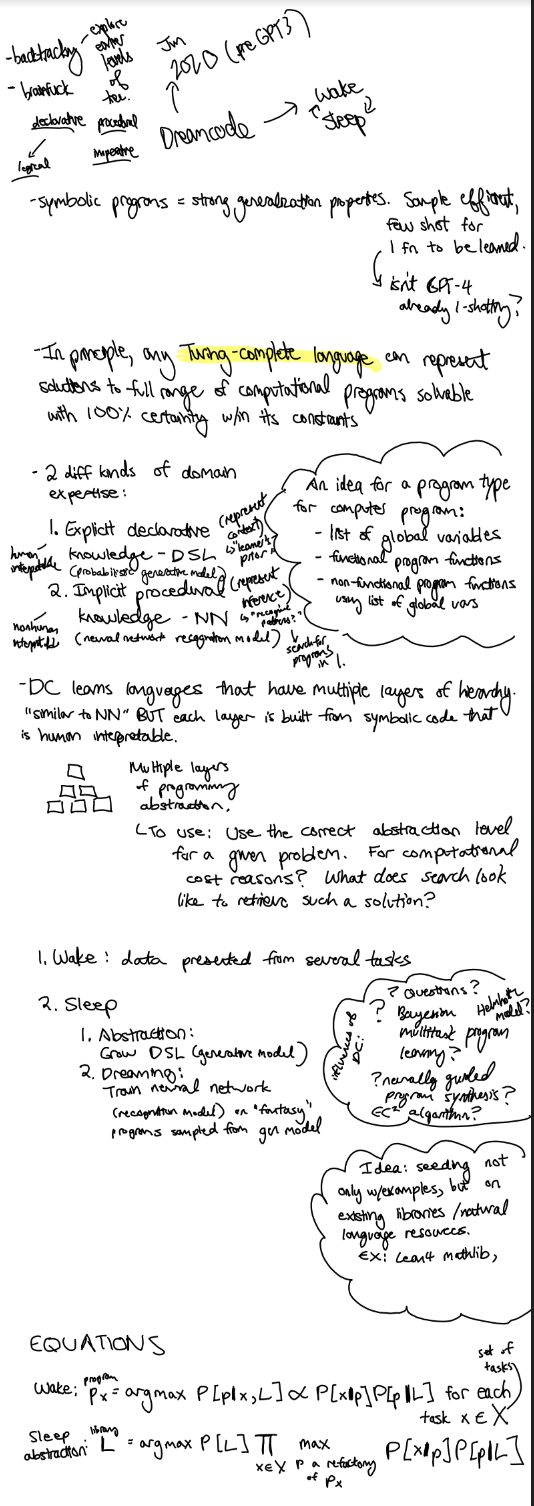 -backtracking
- explore
outer
levels
of
tree.
- brainfuck
declarative
procedural
logical
imperative
Jun
2020 (pre GPT3)
Dreamcode → wake
sleep
-symbolic programs = strong generalization properties. Sample efficient,
few shot for
1 fn to be learned.
isn't GPT-4
already 1-shotting?
-In principle, any Turing-complete language can represent
solutions to full range of computational programs solvable
with 100% certainty w/in its constraints
- 2 diff kinds of domain
expertise:
1. Explicit declarative (represent
context)
human
interpretable
knowledge - DSL
"learner's
prior"
(probabilistic generative model)
2. Implicit procedural (represent
inference)
nonhuman
interpretable
knowledge - NN
"recognize
patterns?"
(neural network recognition model)
search for
programs
in 1.
An idea for a program type
for computer program:
- list of global variables
- functional program functions
- non-functional program functions
using list of global vars
-DC learns languages that have multiple layers of hierarchy.
"similar to NN" BUT each layer is built from symbolic code that
is human interpretable.
Multiple layers
of programming
abstraction.
To use: Use the correct abstraction level
for a given problem. For computational
cost reasons? What does search look
like to retrieve such a solution?
1. Wake: data presented from several tasks
2. Sleep
1. Abstraction:
Grow DSL (generative model)
2. Dreaming:
Train neural network
(recognition model) on "fantasy"
programs sampled from gen model
influences of
DC:
? Questions?
? Bayesian
multitask program
learning?
Helmholtz
model?
? neurally guided
program synthesis?
EC² algorithm?
Idea: seeding not
only w/examples, but on
existing libraries /natural
language resources.
EX: Lean4 mathlib,
EQUATIONS
set of
tasks
program
Wake: pₓ = argmax P[p|x,L] ∝ P[x|p]P[p|L] for each
task x ∈ X
Sleep
abstraction:
library
L = argmax P[L] ∏ max P[x|p]P[p|L]
x∈X p a refactoring
of pₓ